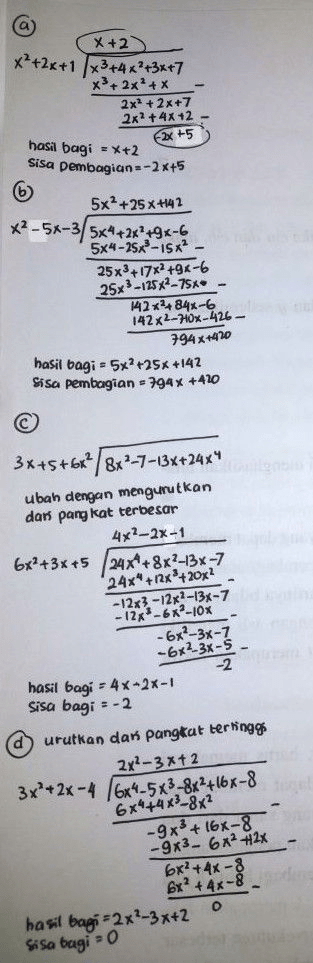 a
x+2
x²+2x+1 √x³+4x²+3x+7
x³+2x²+x -
2x²+2x+7
2x²+4x+2 -
-2x+5
hasil bagi = x+2
sisa pembagian = -2x+5
b
5x²+25x+142
x²-5x-3 √5x⁴+2x²+9x-6
5x⁴-25x³-15x² -
25x³+17x²+9x-6
25x³-125x²-75x -
142x²+84x-6
142x²-710x-426 -
794x+420
hasil bagi = 5x²+25x+142
sisa pembagian = 794x+420
c
3x+5+6x² √8x²-7-13x+24x⁴
ubah dengan mengurutkan
dari pangkat terbesar
4x²-2x-1
6x²+3x+5 √24x⁴+8x²-13x-7
24x⁴+12x³+20x² -
-12x³-12x²-13x-7
-12x³-6x²-10x -
-6x²-3x-7
-6x²-3x-5 -
-2
hasil bagi = 4x-2x-1
sisa bagi = -2
d urutkan dari pangkat tertinggi
2x²-3x+2
3x²+2x-4 √6x⁴-5x³-8x²+16x-8
6x⁴+4x³-8x² -
-9x³+16x-8
-9x³-6x²+12x -
6x²+4x-8
6x²+4x-8 -
0
hasil bagi = 2x²-3x+2
sisa bagi = 0